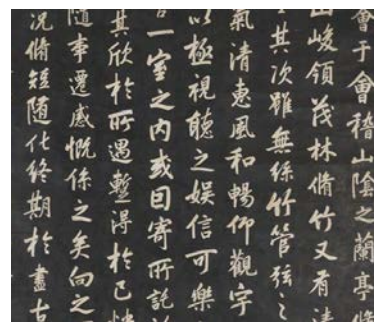 會于會稽山陰之蘭亭脩
山峻領茂林脩竹又有清
其次雖無絲竹管弦之
氣清惠風和暢仰觀宇
以極視聽之娛信可樂
一室之內或因寄所託
其欣於所遇暫得於己快
隨事遷感慨係之矣向之
況脩短隨化終期於盡古